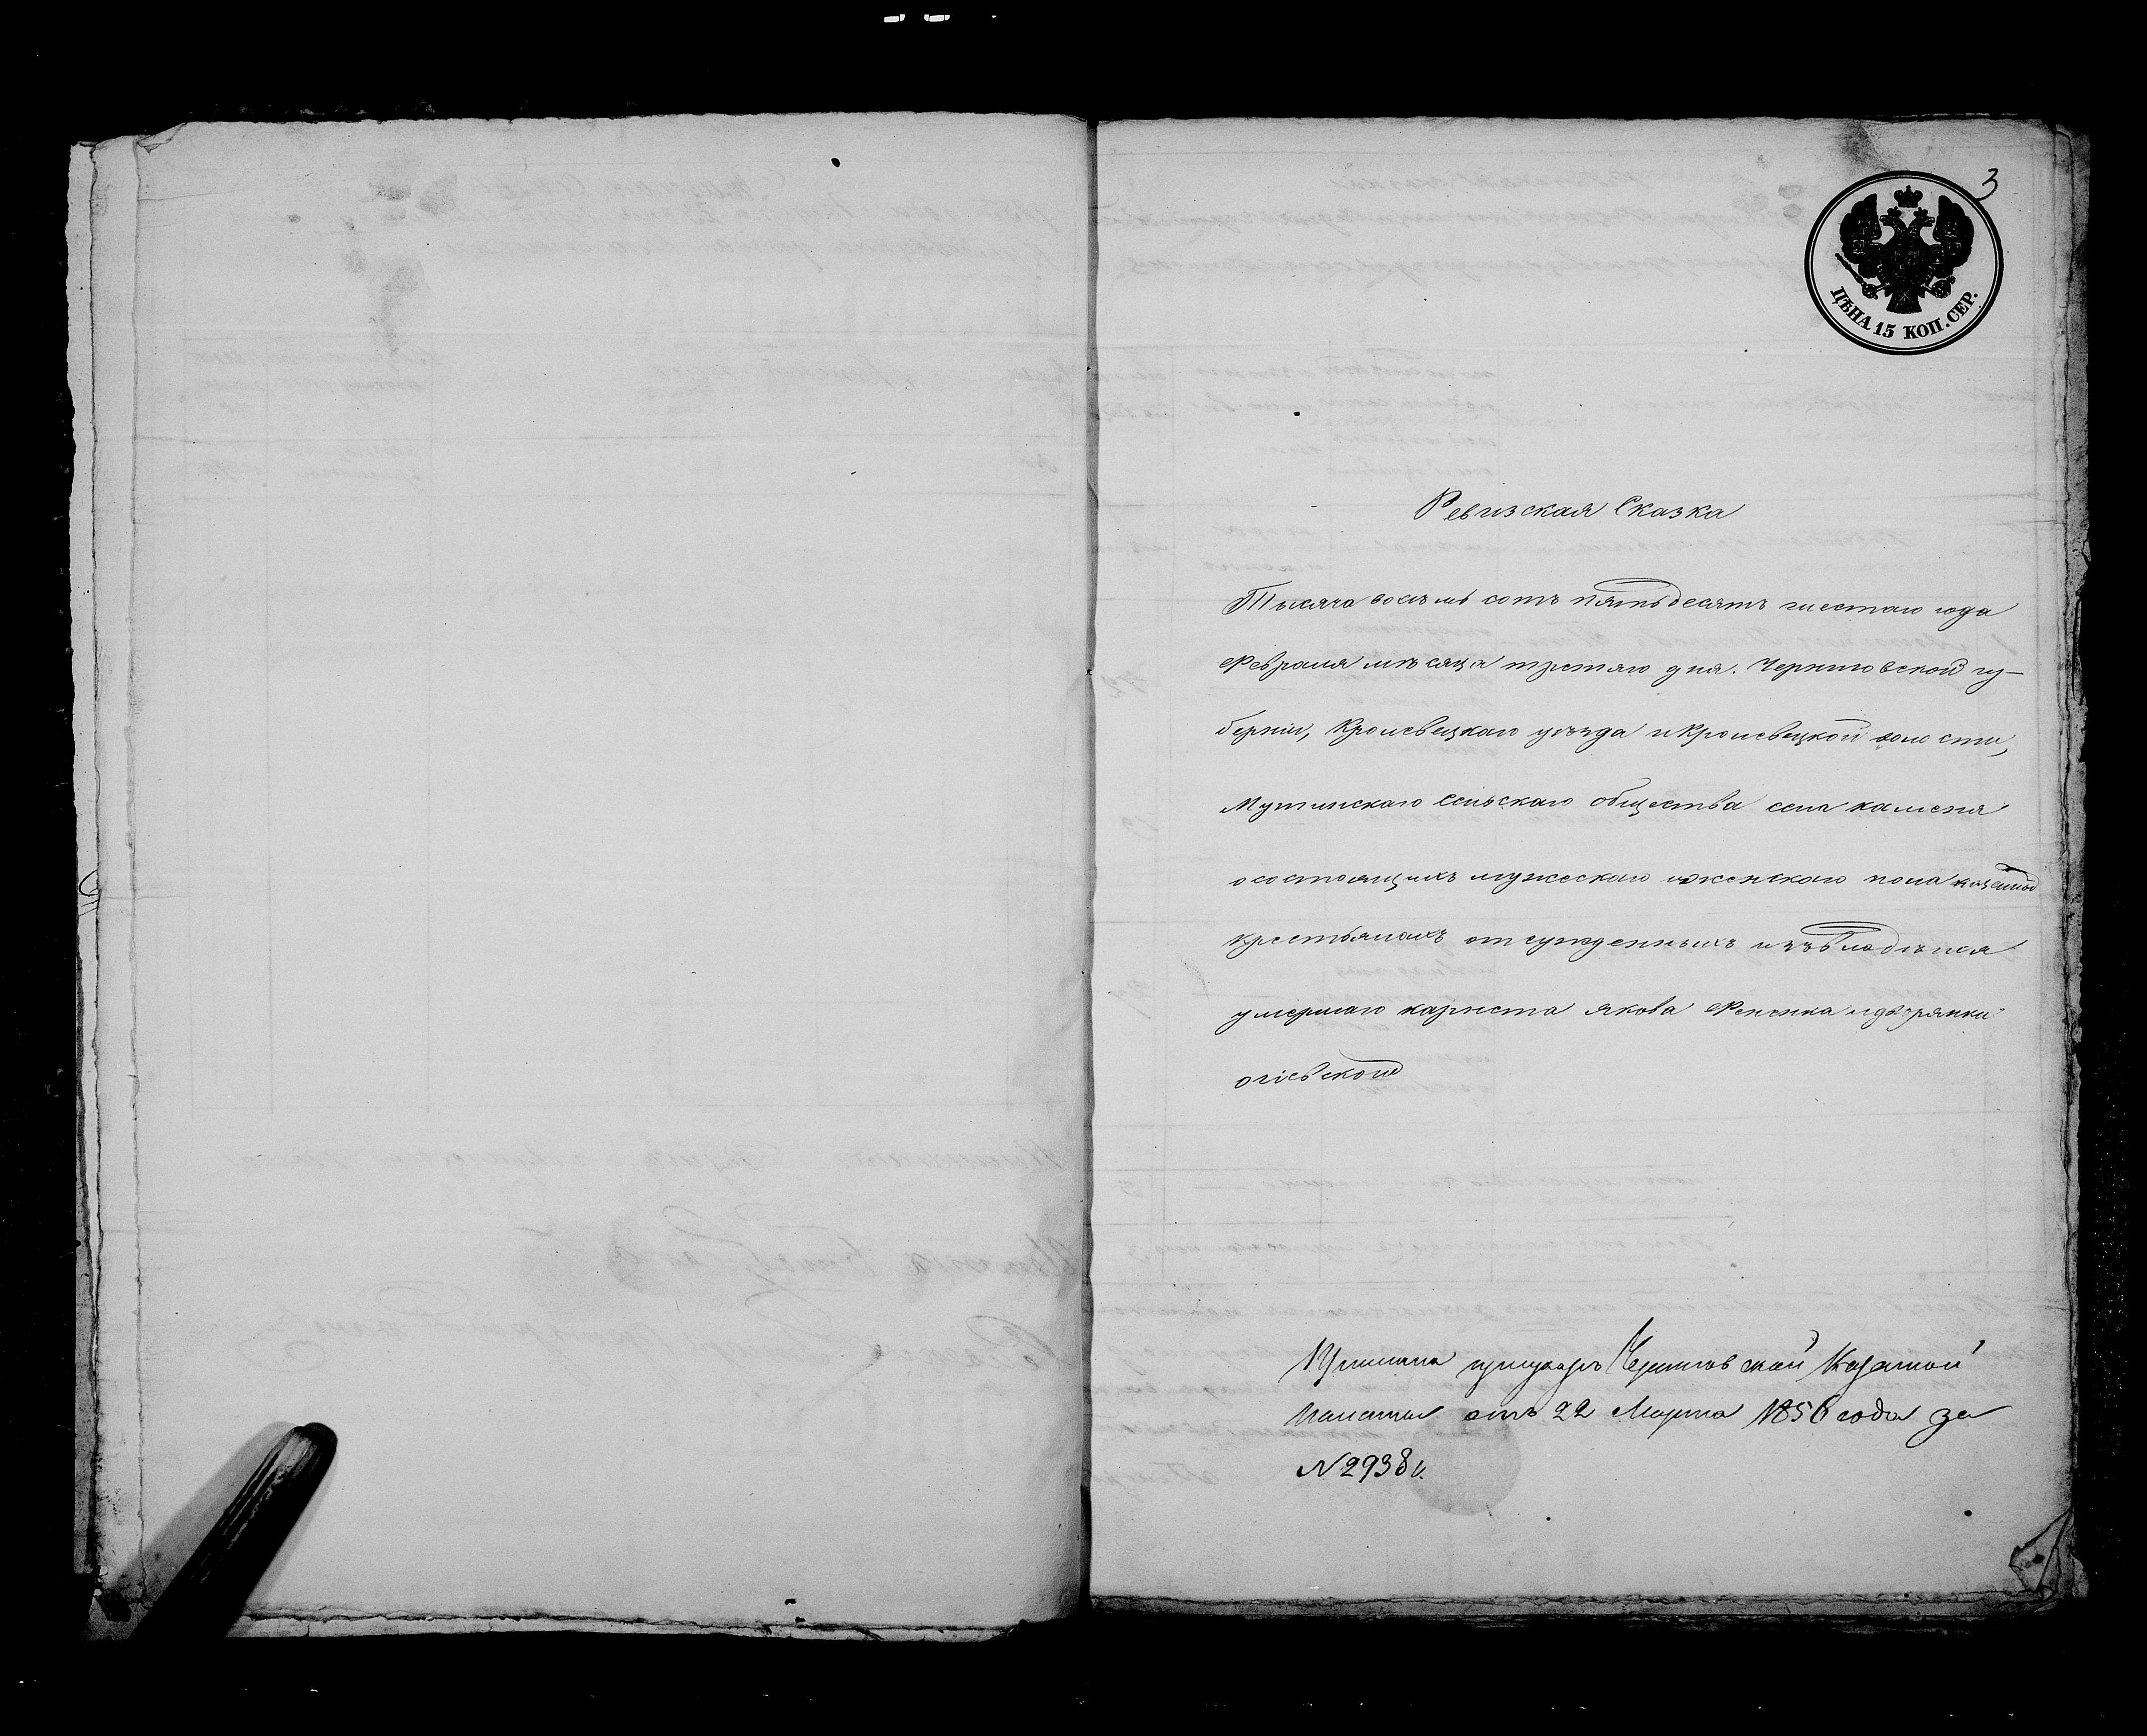 3
ЦѢНА 15 КОП. СЕР.
Ревизская Сказка
Тысяча восемь сотъ пятьдесятъ шестаго года
Февраля мѣсяца третяго дня. Черниговской гу-
берніи, Кролевецкаго уѣзда и Кролевецкой волости,
Мутинскаго сельскаго общества села каменя
о состоящихъ мужескаго и женскаго пола
крестьянахъ отсужденныхъ изъ владѣнія
умершаго якова Фененка и дворянки
огіевской
Черниговской Казенной
Палаты отъ 22 Марта 1856 года за
N 2938